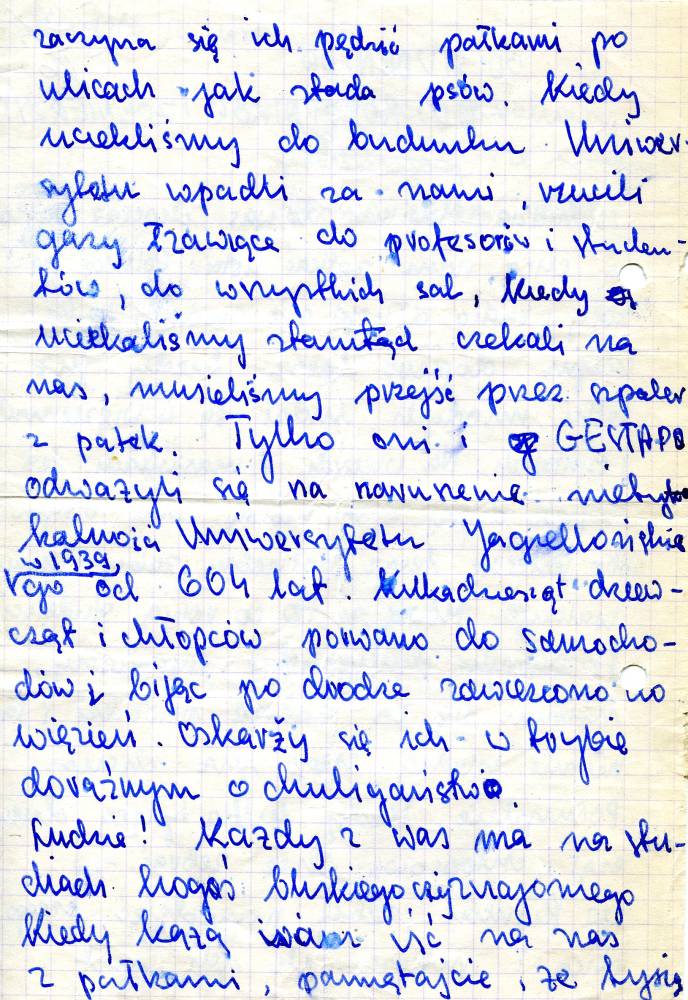 zaczyna się ich pędzić pałkami po
ulicach jak stada psów. Kiedy
uciekliśmy do budynku Uniwer-
sytetu wpadli za nami, rzucili
gazy łzawiące do profesorów i studen-
tów, do wszystkich sal, kiedy
uciekaliśmy stamtąd czekali na
nas, musieliśmy przejść przez szpaler
z pałek. Tylko oni i GESTAPO
odważyli się na naruszenie niety-
kalności Uniwersytetu Jagiellońskie
w 1939,
go od 604 lat. Kilkadziesiąt dziew-
cząt i chłopców porwano do samocho-
dów i bijąc po drodze zawieziono do
więzień. Oskarży się ich w trybie
doraźnym o chuligaństwo.
Ludzie! Każdy z was ma na stu-
diach kogoś bliskiego czy znajomego
Kiedy każą wam iść na nas
z pałkami, pamiętajcie, że tysią